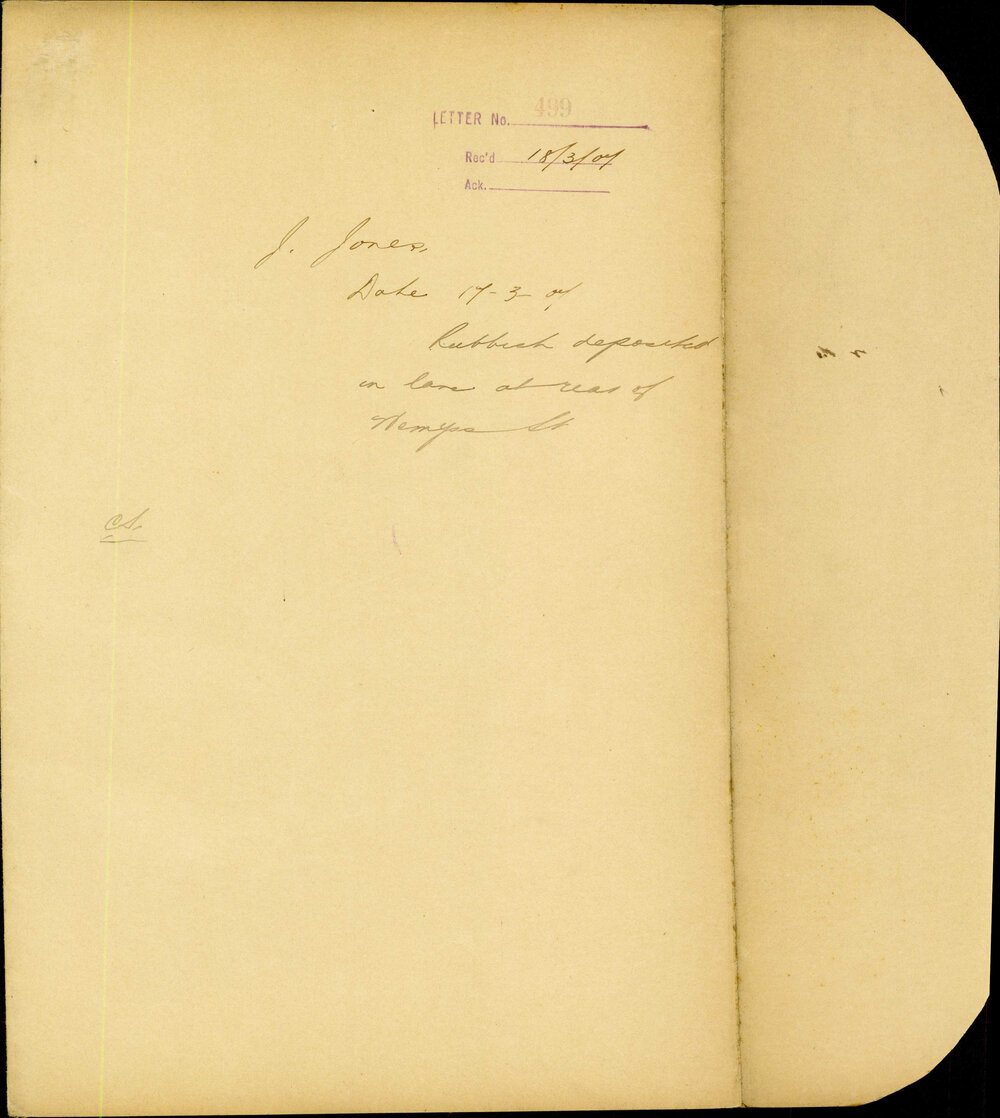 LETTER No. 499
Rec'd 18/3/07
Ack.
J. Jones,
Date 17-3-07
Rubbish deposited
in lane at rear of
Wemyss St